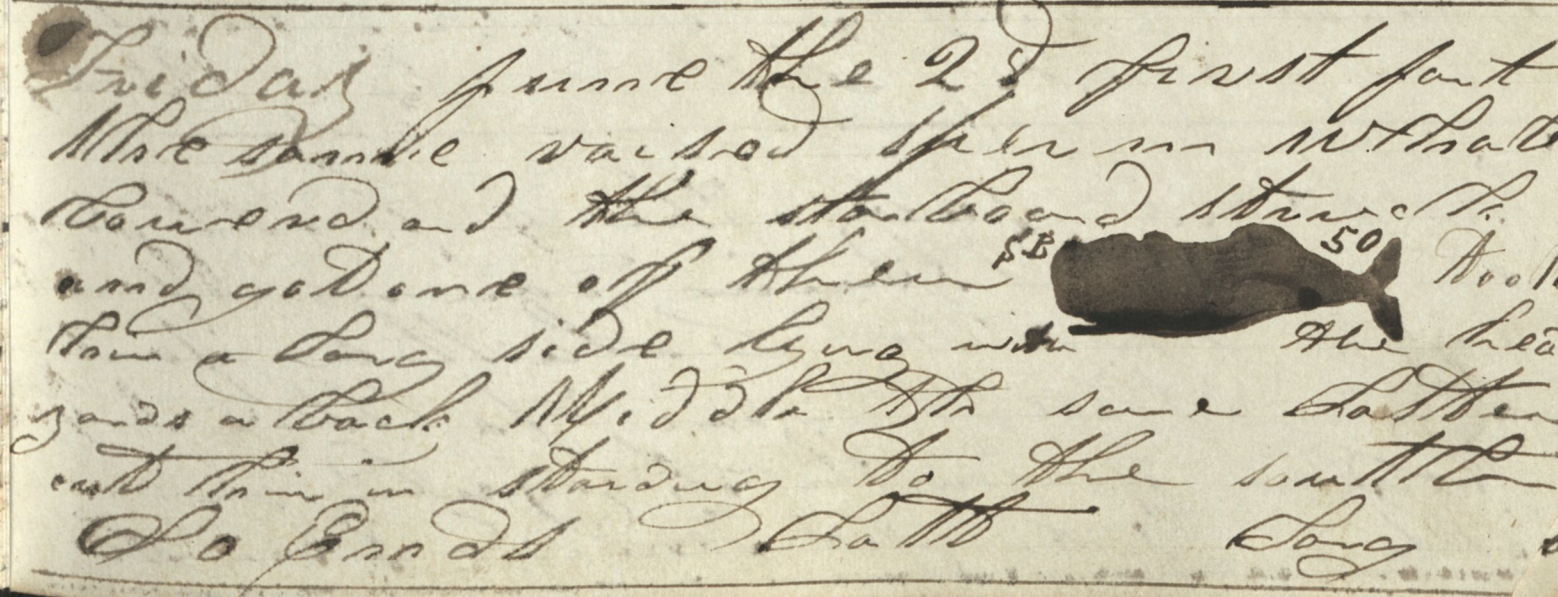 Friday june the 2d first part
the same raised sperm whale
lowered and the starboard struck
and got one of them SB 50 took
him a long side lying with the head
yards a back Middle the same Latter
cut him in standing to the south
So Ends Latt Long